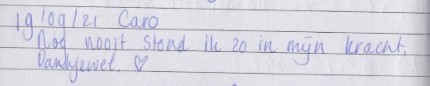 19/09/21 Caro
Nog nooit stond ik zo in mijn kracht.
Dankjewel. ♡